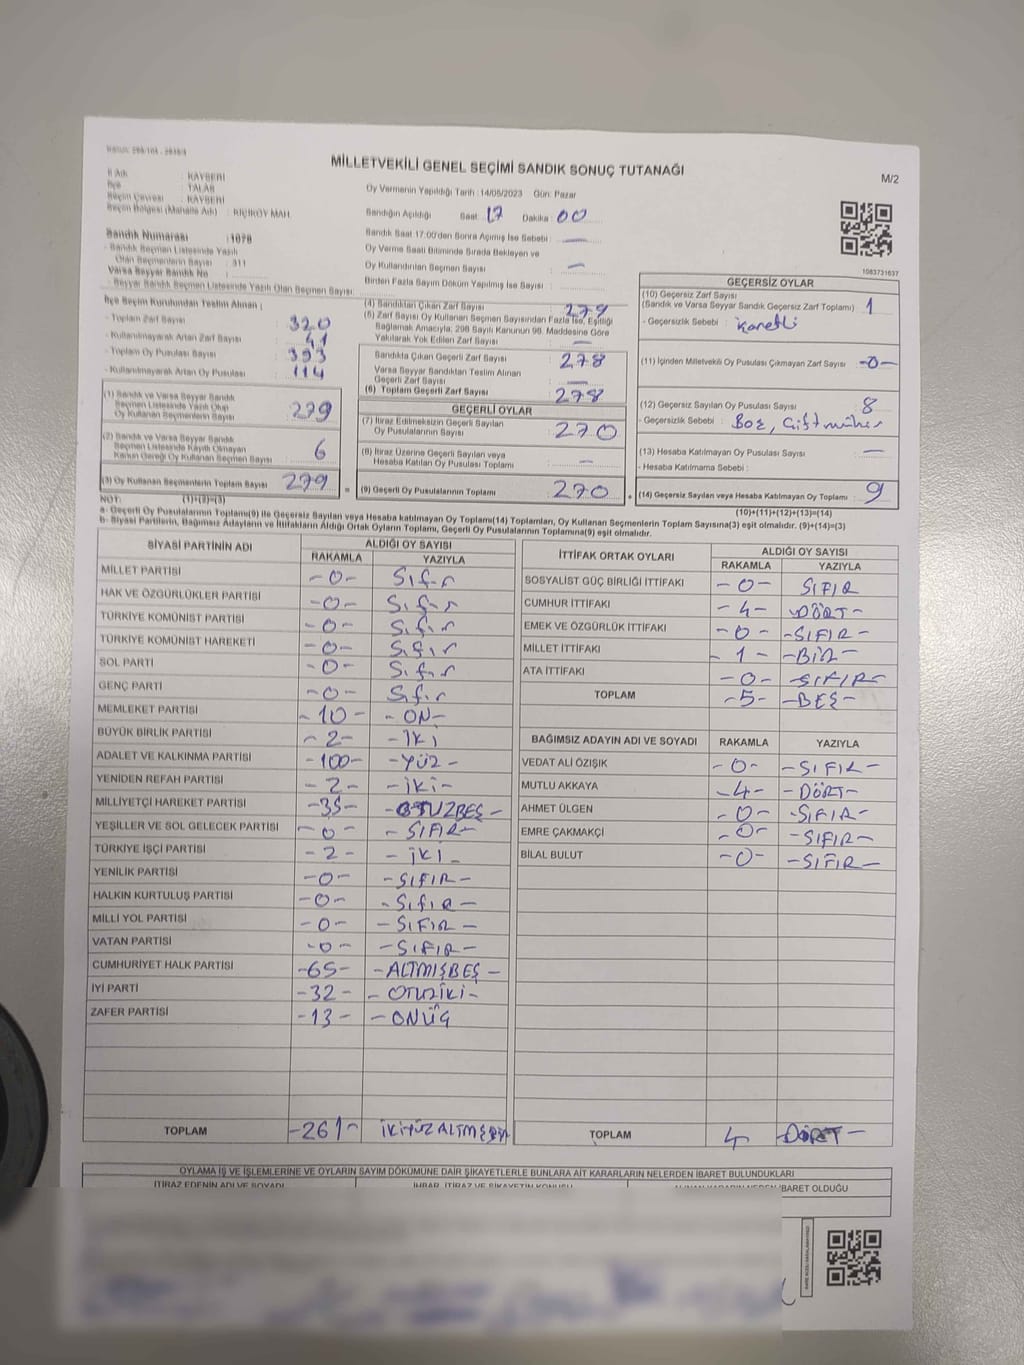 MİLLETVEKİLİ GENEL SEÇİMİ SANDIK SONUÇ TUTANAĞI
M/2
İl Adı : KAYSERİ
İlçe : TALAS
Seçim Çevresi : KAYSERİ
Seçim Bölgesi (Mahalle Adı) : KİÇİKÖY MAH.
Oy Vermenin Yapıldığı Tarih : 14/05/2023 Gün: Pazar
Sandığın Açıldığı Saat : 17 Dakika : 00
Sandık Saat 17:00'den Sonra Açılmış İse Sebebi : —
Oy Verme Saati Bitiminde Sırada Bekleyen ve
Oy Kullandırılan Seçmen Sayısı : —
Birden Fazla Sayım Döküm Yapılmış İse Sayısı :
Sandık Numarası : 1078
- Sandık Seçmen Listesinde Yazılı
Olan Seçmenlerin Sayısı : 311
Varsa Seyyar Sandık No :
- Seyyar Sandık Seçmen Listesinde Yazılı Olan Seçmen Sayısı:
1083731637
İlçe Seçim Kurulundan Teslim Alınan ;
- Toplam Zarf Sayısı : 320
- Kullanılmayarak Artan Zarf Sayısı : 41
- Toplam Oy Pusulası Sayısı : 393
- Kullanılmayarak Artan Oy Pusulası : 114
(1) Sandık ve Varsa Seyyar Sandık
Seçmen Listesinde Yazılı Olup
Oy Kullanan Seçmenlerin Sayısı : 279
(2) Sandık ve Varsa Seyyar Sandık
Seçmen Listesinde Kayıtlı Olmayan
Kanun Gereği Oy Kullanan Seçmen Sayısı : 6
(3) Oy Kullanan Seçmenlerin Toplam Sayısı : 279
(4) Sandıktan Çıkan Zarf Sayısı : 279
(5) Zarf Sayısı Oy Kullanan Seçmen Sayısından Fazla İse, Eşitliği
Sağlamak Amacıyla, 298 Sayılı Kanunun 98. Maddesine Göre
Yakılarak Yok Edilen Zarf Sayısı : —
Sandıkta Çıkan Geçerli Zarf Sayısı : 278
Varsa Seyyar Sandıktan Teslim Alınan
Geçerli Zarf Sayısı : —
(6) Toplam Geçerli Zarf Sayısı : 278
GEÇERLİ OYLAR
(7) İtiraz Edilmeksizin Geçerli Sayılan
Oy Pusulalarının Sayısı : 270
(8) İtiraz Üzerine Geçerli Sayılan veya
Hesaba Katılan Oy Pusulası Toplamı : —
= (9) Geçerli Oy Pusulalarının Toplamı : 270
GEÇERSİZ OYLAR
(10) Geçersiz Zarf Sayısı
(Sandık ve Varsa Seyyar Sandık Geçersiz Zarf Toplamı) : 1
- Geçersizlik Sebebi :
(11) İçinden Milletvekili Oy Pusulası Çıkmayan Zarf Sayısı : -0-
(12) Geçersiz Sayılan Oy Pusulası Sayısı : 8
- Geçersizlik Sebebi : Boş, Çift mühür
(13) Hesaba Katılmayan Oy Pusulası Sayısı : —
- Hesaba Katılmama Sebebi :
+ (14) Geçersiz Sayılan veya Hesaba Katılmayan Oy Toplamı : 9
NOT: (1)+(2)=(3)
(10)+(11)+(12)+(13)=(14)
a- Geçerli Oy Pusulalarının Toplamı(9) ile Geçersiz Sayılan veya Hesaba katılmayan Oy Toplamı(14) Toplamları, Oy Kullanan Seçmenlerin Toplam Sayısına(3) eşit olmalıdır. (9)+(14)=(3)
b- Siyasi Partilerin, Bağımsız Adayların ve İttifakların Aldığı Ortak Oyların Toplamı, Geçerli Oy Pusulalarının Toplamına(9) eşit olmalıdır.
SİYASİ PARTİNİN ADI ALDIĞI OY SAYISI
RAKAMLA YAZIYLA
MİLLET PARTİSİ -0- Sıfır
HAK VE ÖZGÜRLÜKLER PARTİSİ -0- Sıfır
TÜRKİYE KOMÜNİST PARTİSİ -0- Sıfır
TÜRKİYE KOMÜNİST HAREKETİ -0- Sıfır
SOL PARTİ -0- Sıfır
GENÇ PARTİ -0- Sıfır
MEMLEKET PARTİSİ -10- -ON-
BÜYÜK BİRLİK PARTİSİ -2- -İKİ
ADALET VE KALKINMA PARTİSİ -100- -YÜZ-
YENİDEN REFAH PARTİSİ -2- -İKİ-
MİLLİYETÇİ HAREKET PARTİSİ -35- -OTUZBEŞ-
YEŞİLLER VE SOL GELECEK PARTİSİ -0- -SIFIR-
TÜRKİYE İŞÇİ PARTİSİ -2- -İKİ-
YENİLİK PARTİSİ -0- -SIFIR-
HALKIN KURTULUŞ PARTİSİ -0- -Sıfır-
MİLLİ YOL PARTİSİ -0- -SIFIR-
VATAN PARTİSİ -0- -SIFIR-
CUMHURİYET HALK PARTİSİ -65- -ALTMIŞBEŞ-
İYİ PARTİ -32- -OTUZİKİ-
ZAFER PARTİSİ -13- -ONÜÇ
TOPLAM -261- İKİYÜZALTMIŞBİR
İTTİFAK ORTAK OYLARI ALDIĞI OY SAYISI
RAKAMLA YAZIYLA
SOSYALİST GÜÇ BİRLİĞİ İTTİFAKI -0- SIFIR
CUMHUR İTTİFAKI -4- DÖRT-
EMEK VE ÖZGÜRLÜK İTTİFAKI -0- -SIFIR-
MİLLET İTTİFAKI -1- -BİR-
ATA İTTİFAKI -0- -SIFIR-
TOPLAM -5- -BEŞ-
BAĞIMSIZ ADAYIN ADI VE SOYADI RAKAMLA YAZIYLA
VEDAT ALİ ÖZIŞIK -0- -SIFIR-
MUTLU AKKAYA -4- -DÖRT-
AHMET ÜLGEN -0- -SIFIR-
EMRE ÇAKMAKÇİ -0- -SIFIR-
BİLAL BULUT -0- -SIFIR-
TOPLAM 4 -DÖRT-
OYLAMA İŞ VE İŞLEMLERİNE VE OYLARIN SAYIM DÖKÜMÜNE DAİR ŞİKAYETLERLE BUNLARA AİT KARARLARIN NELERDEN İBARET BULUNDUKLARI
İTİRAZ EDENİN ADI VE SOYADI İHBAR, İTİRAZ VE ŞİKAYETİN KONUSU ALINAN KARARIN NEDEN İBARET OLDUĞU